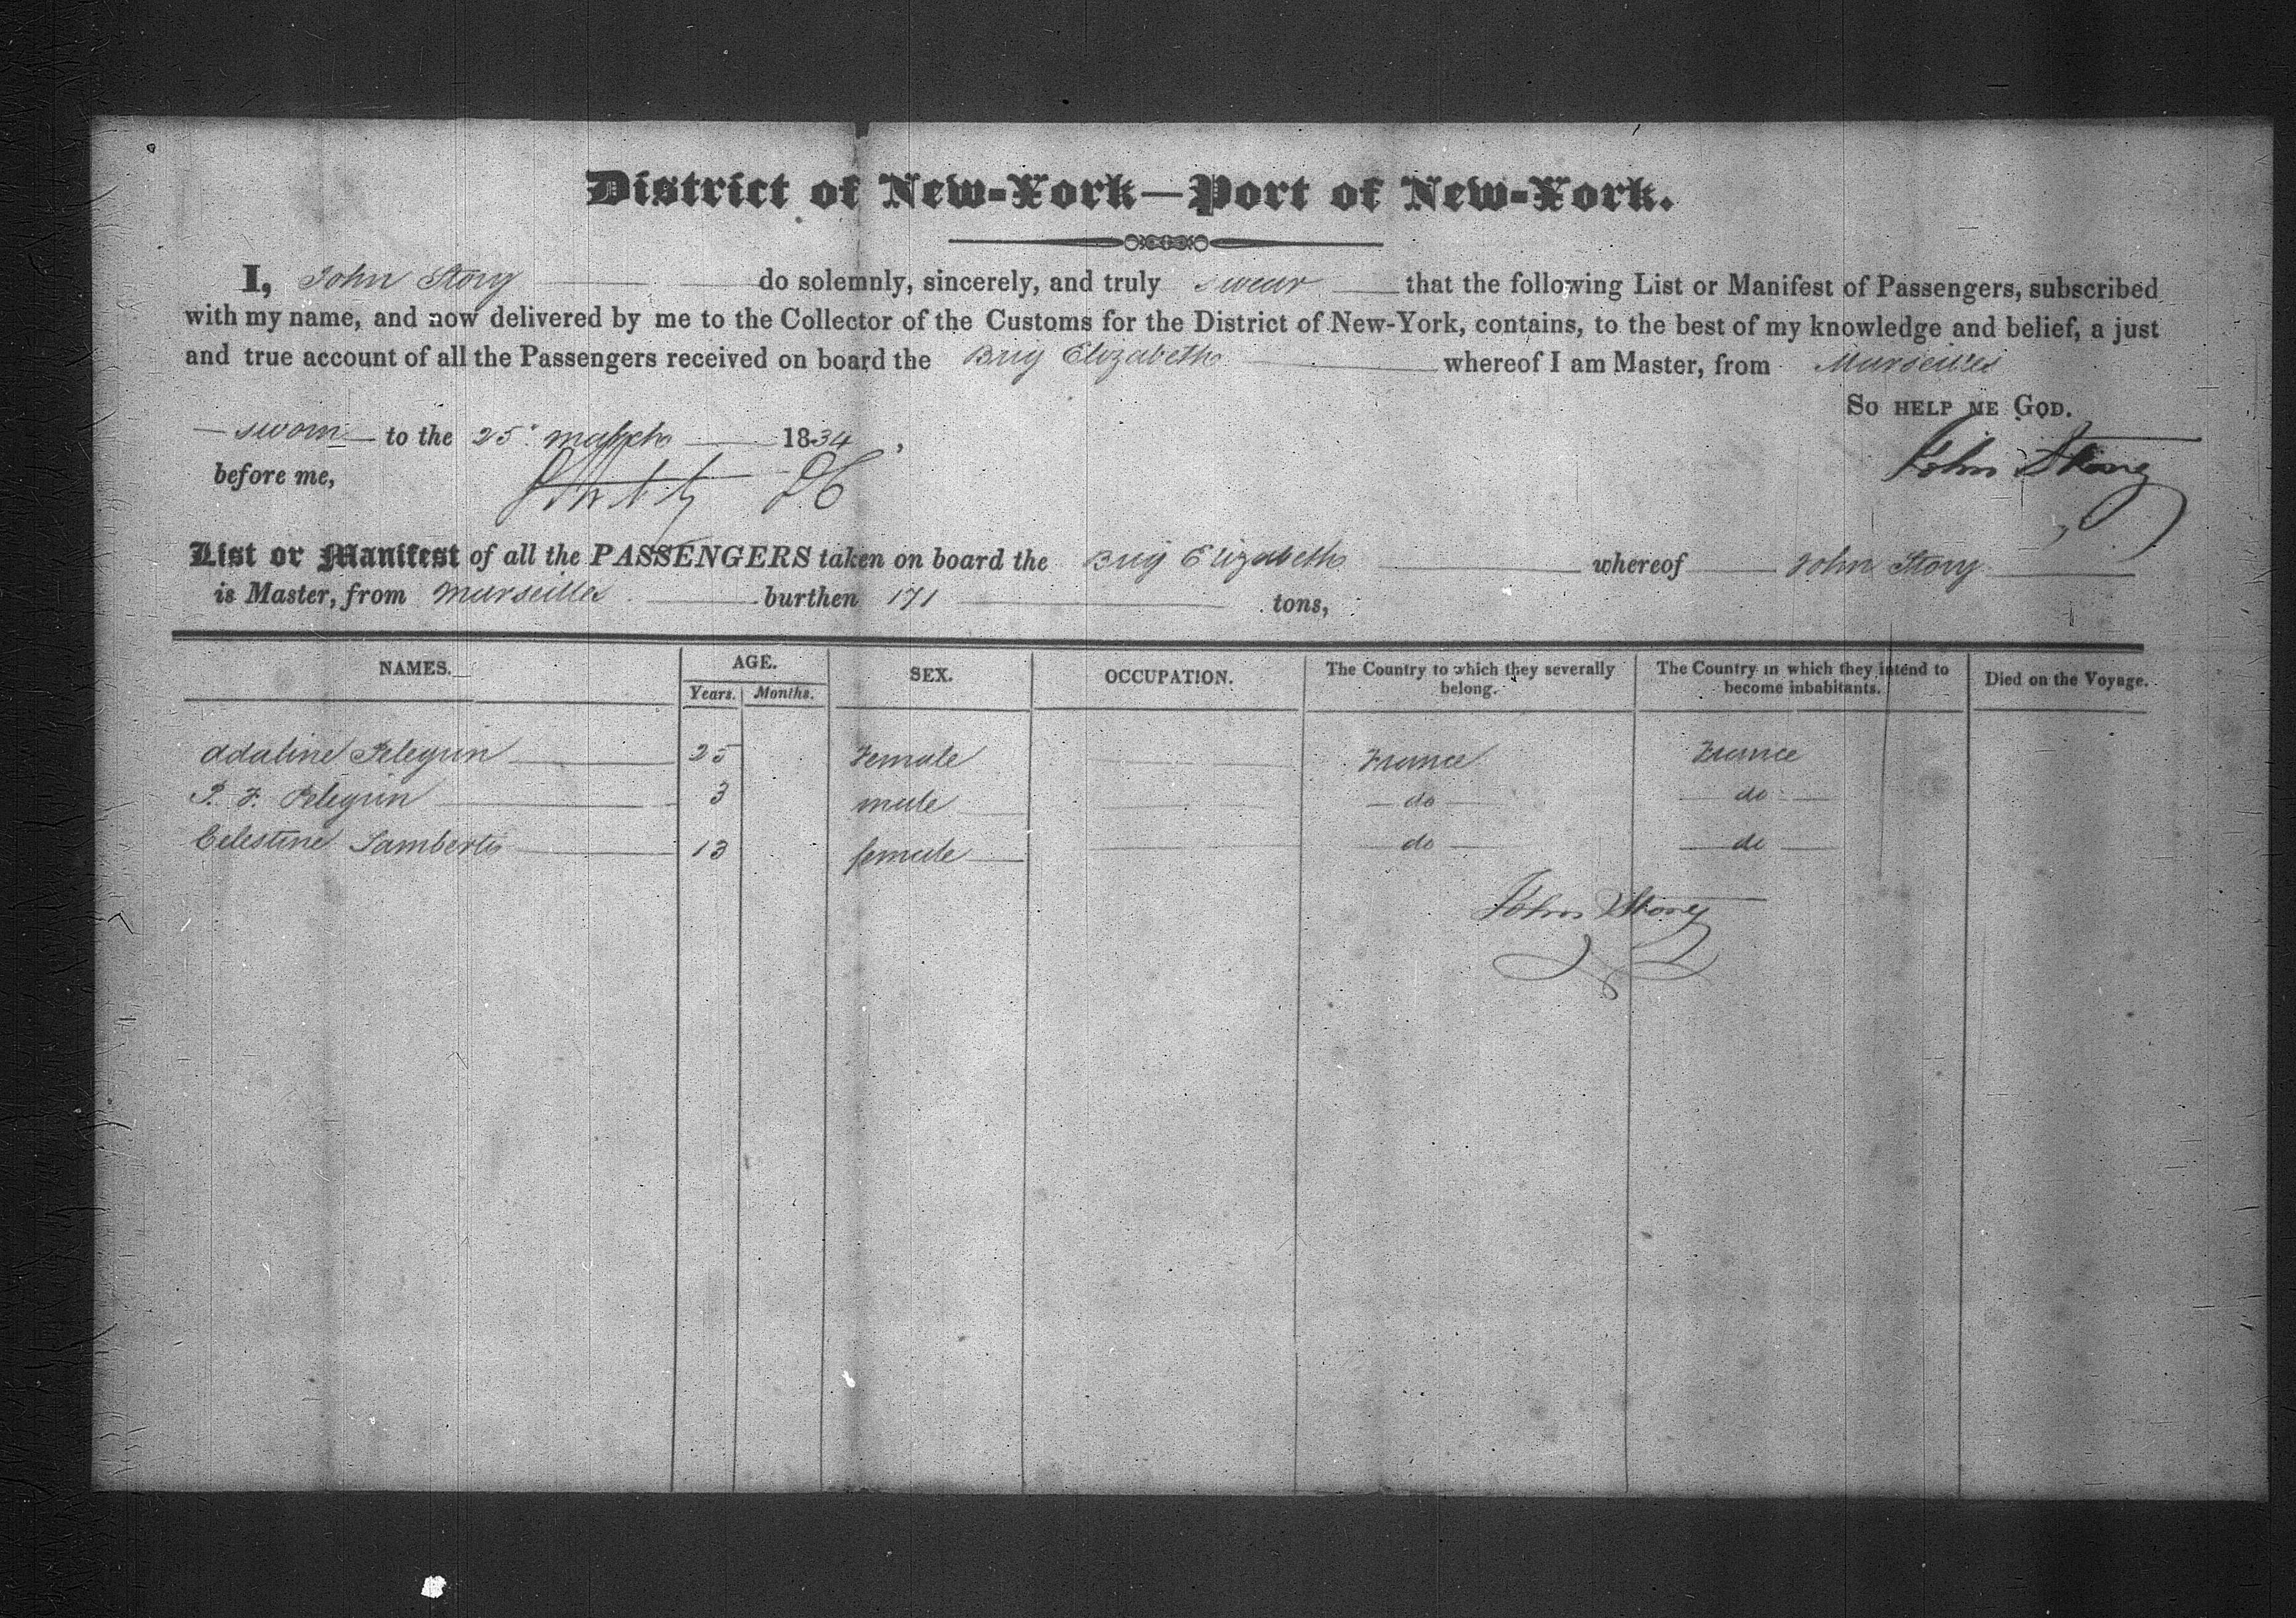 District of New-York—Port of New-York.
I, John Story do solemnly, sincerely, and truly swear that the following List or Manifest of Passengers, subscribed
with my name, and now delivered by me to the Collector of the Customs for the District of New-York, contains, to the best of my knowledge and belief, a just
and true account of all the Passengers received on board the Brig Elizabeth whereof I am Master, from Marseilles
So help me God.
sworn to the 25 march 1834,
before me,
John Story
List or Manifest of all the PASSENGERS taken on board the Brig Elizabeth whereof John Story
is Master, from Marseilles burthen 171 tons,
NAMES. AGE. SEX. OCCUPATION. The Country to which they severally belong. The Country in which they intend to become inhabitants. Died on the Voyage.
Years. Months.
Adaline Pelegrin 25 Female France France
P. F. Pelegrin 3 male do do
Celestine Lambert 13 female do do
John Story